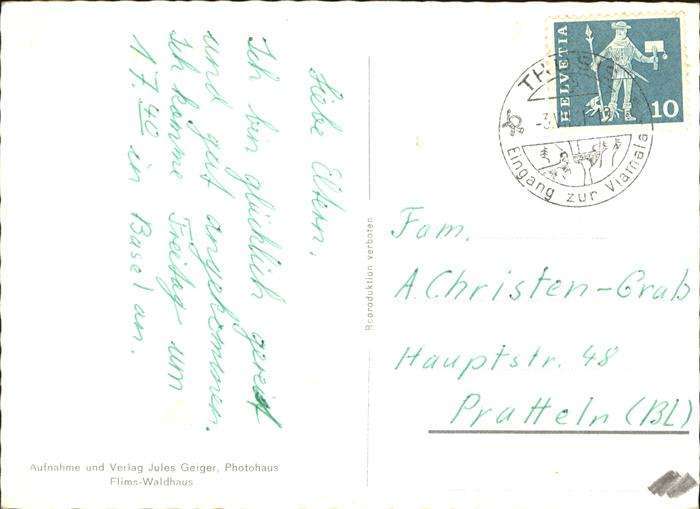 Liebe Eltern.
Ich bin glücklich gereist
und gut angekommen.
Ich komme Freitag um
17.40 in Basel an.
Reproduktion verboten
HELVETIA
10
Eingang zur Viamala
Fam.
A. Christen-Grab
Hauptstr. 48
Pratteln (BL)
Aufnahme und Verlag Jules Geiger, Photohaus
Flims-Waldhaus